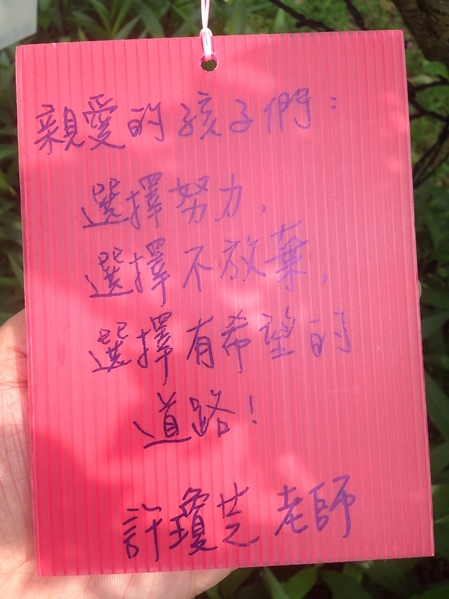 親愛的孩子們：
選擇努力，
選擇不放棄，
選擇有希望的
道路！
許瓊芝老師